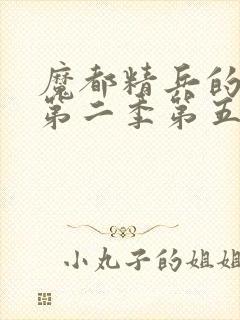 魔都精兵的
第二季第五
小丸子的姐姐